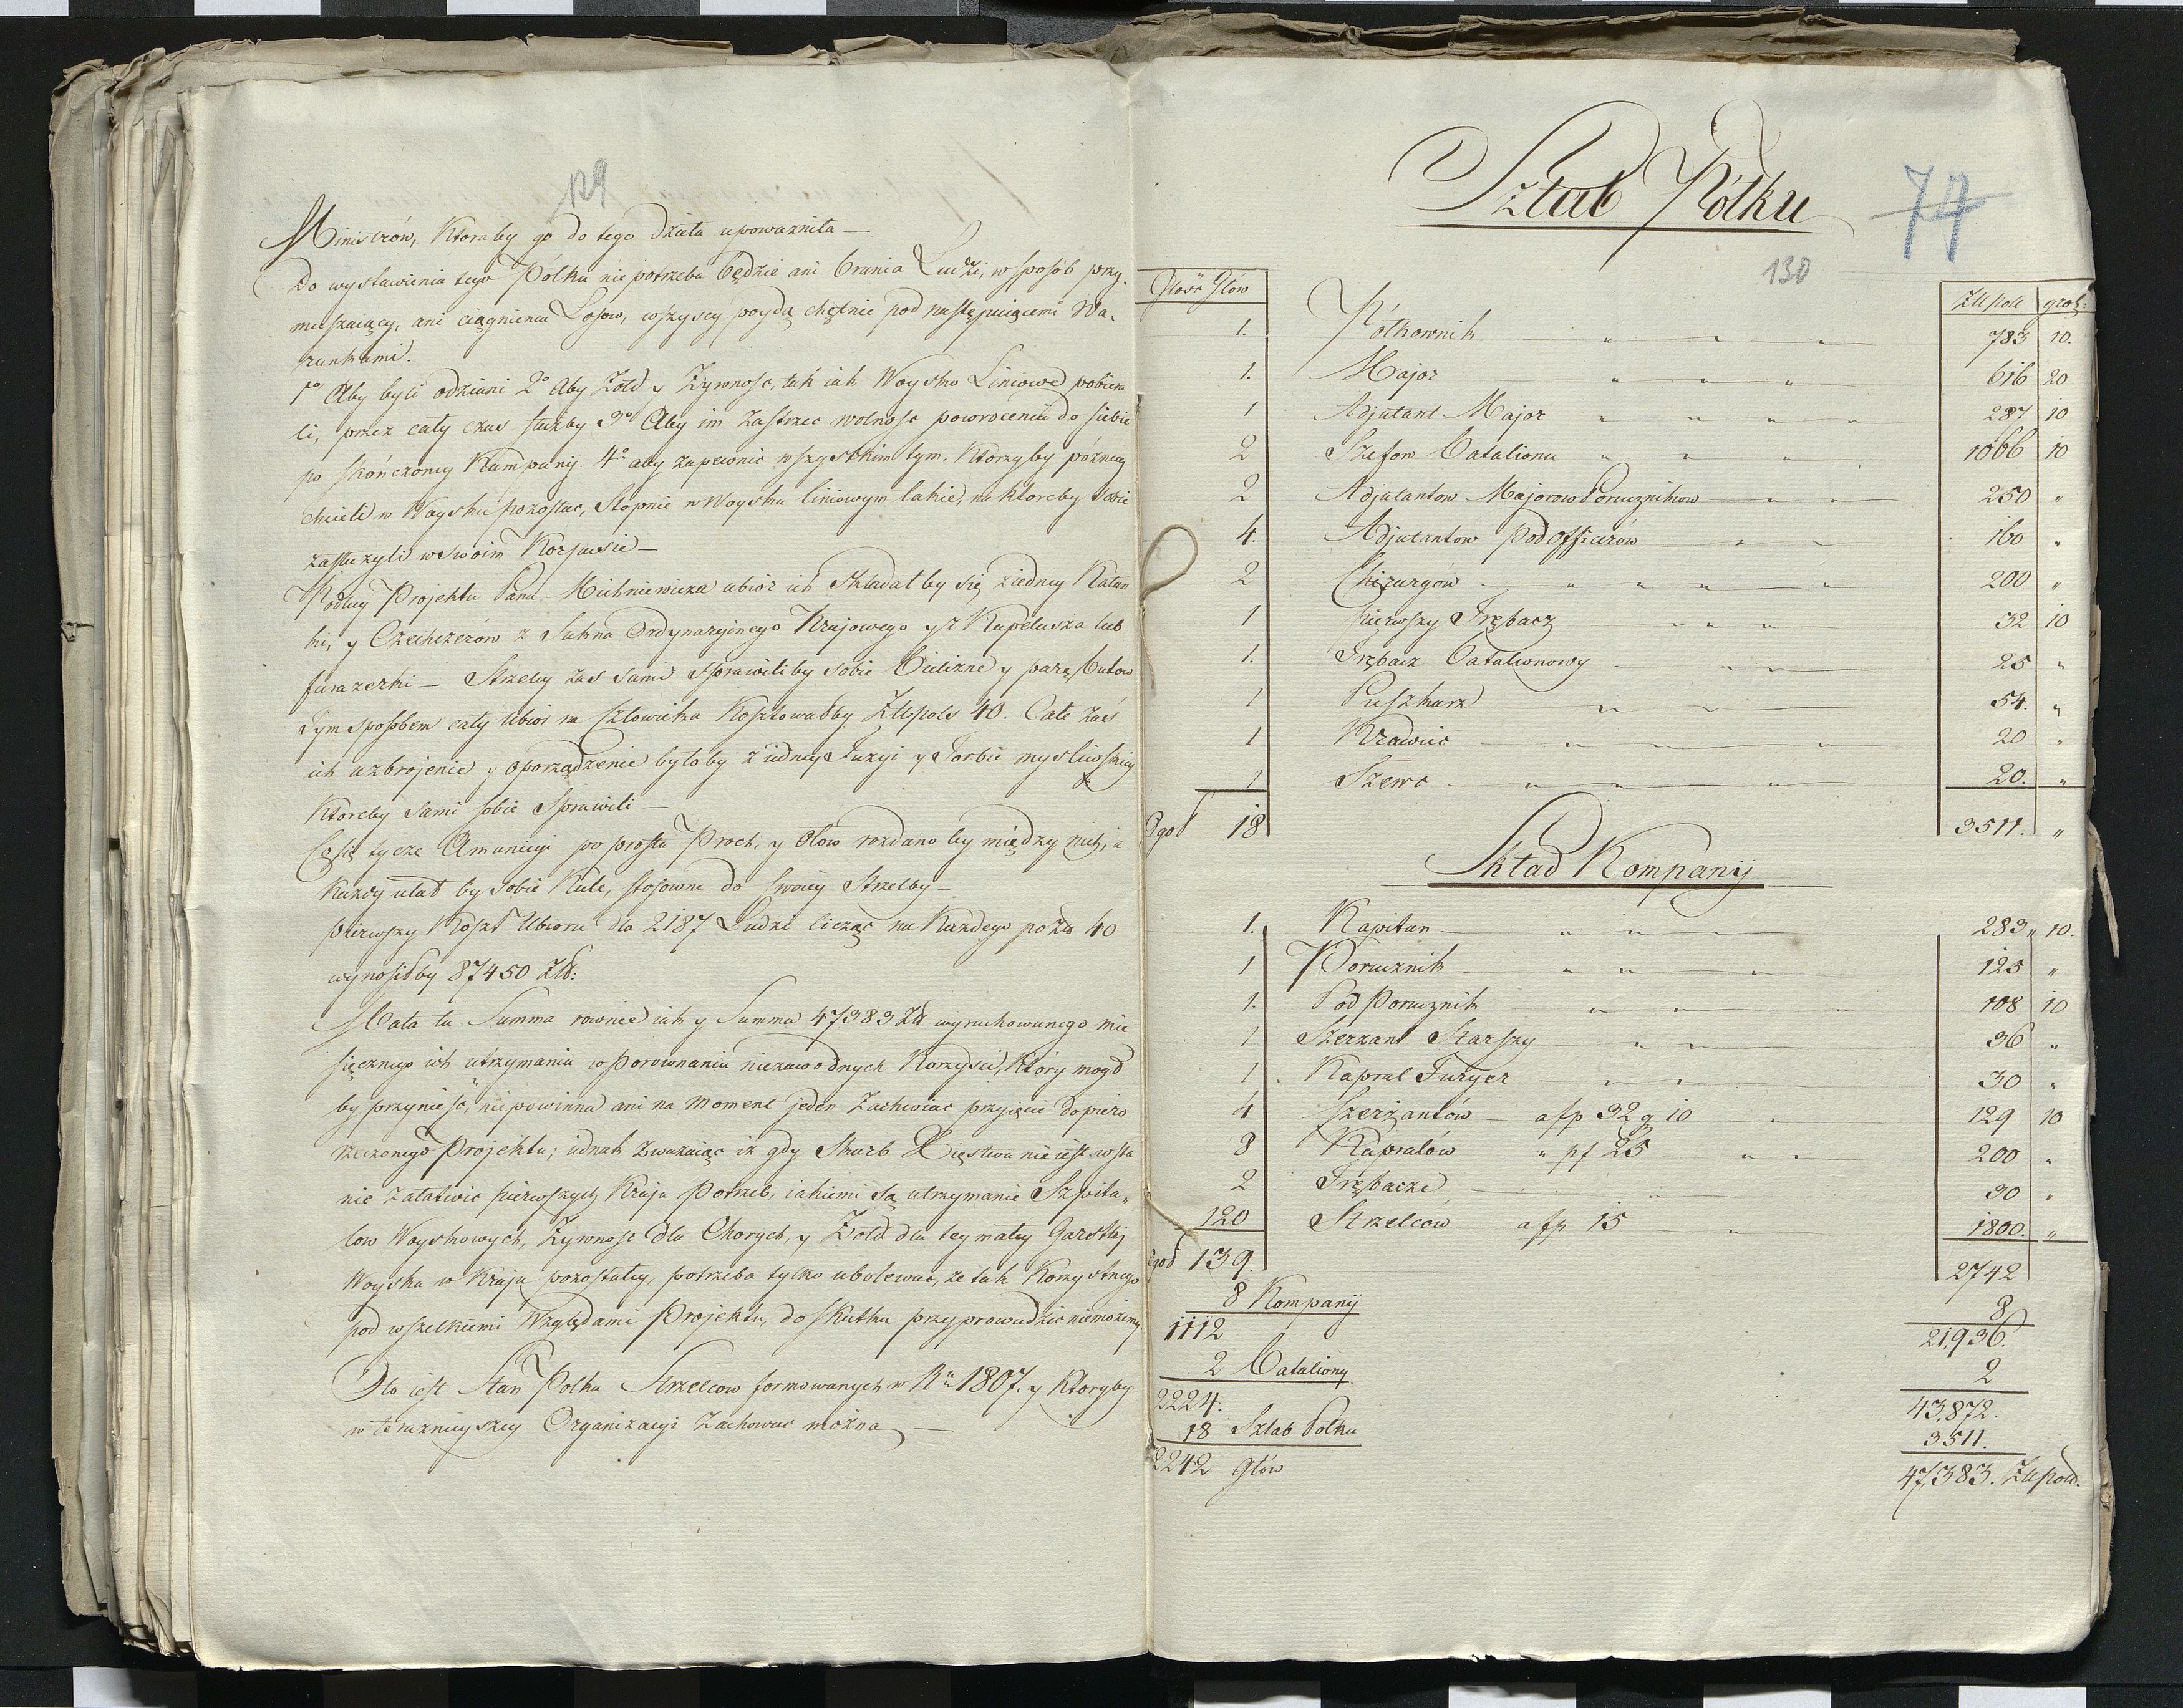 129
Ministrów, Któraby go do tego Dzieła upoważniła —
Do wystawienia tego Pólku nie potrzeba będzie ani brania Ludzi, w sposób przy-
muszaiący, ani ciągnienia Losow, wszyscy poydą chętnie pod następuiącemi Wa-
runkami.
1o Aby byli odziani 2o Aby Żołd y Żywnosc, tak iak Woysko Liniowe pobiera
li, przez cały czas służby 3o Aby im zastrzec wolnosc powrocenia do siebie
po skończoney Kampanij. 4o aby zapewnic wszystkim tym. Którzyby pózniey
chcieli w Woysku pozostac, Stopnie w Woysku liniowym takie, na ktoreby sobie
zasłuzyli w swoim Korpusie —
Podług Projektu Pana Michniewicza ubiór ich składałby się z iedney Katan
ki, y Czechczerów z Sukna Ordynaryinego Krajowego y z Kapelusza lub
furazerki — Strzelcy zas sami sprawiliby sobie Bielizne y parę butow
Tym sposobem cały Ubior na Człowieka Kosztowałby Złłpols 40. Całe zaś
ich uzbrojenie y oporządzenie byłoby z iedney Fuzyi y Torbie mysliwskiey
Ktoreby sami sobie sprawili —
Co się tycze Amunicyi po prostu Proch, y Ołow rozdano by między nich, a
Kazdy ulał by sobie Kule, stosowne do swoiey Strzelby —
pierwszy Koszt Ubioru dla 2187 Ludzi licząc na Kazdego po Złł 40
wynosiłby 87450 Złł:
Mała ta Summa rownie iak y Summa 47383 Złł wyrachowanego mie
sięcznego ich utrzymania w Porownaniu niezawodnych Korzysci, Który mogł
by przynieść, niepowinna ani na Moment jeden zachwiac przyięcie dopiero
rzeczonego Projektu; iednak zwazaiąc iz gdy Skarb Xięstwa nie iest w sta
nie załatwic pierwszych Kraju Potrzeb, iakiemi są utrzymanie Szpita-
low Woyskowych, Zywnosc dla Chorych, y Żołd dla tey małey Garstki
Woyska w Kraju pozostałey, potrzeba tylko ubolewac, ze tak Korzystnego
pod wszelkiemi Względami Projektu, do skutku przyprowadzic niemożemy.
Oto iest Stan Polku Strzelcow formowanych w Ru 1807. y Ktoryby
w teraznieyszey Organizacyi zachowac można —
Sztab Pólku
74
130
Ilość Głów
Złł Pols grosz:
1. Pólkownik 783 10.
1. Major 616 20
1 Adjutant Major 287 10
2 Szefow Batalionu 1066 10
2 Adjutantow Majorow Porucznikow 250 "
4. Adjutantow Pod Officerów 160 "
2 Chirurgów 200 "
1 Pierwszy Trębacz 32 10
1. Trębacz Batalionowy 25 "
1 Puszkarz 54. "
1 Krawiec 20 "
1 Szewc 20. "
Ogoł 18 3511. "
Skład Kompanij
1. Kapitan 283 " 10.
1 Porucznik 125 "
1. Pod Porucznik 108 10
1 Szerzant Starszy 36 "
1. Kapral Furyer 30 "
4 Szerżantów a fp 32 g 10 129 10
8 Kapralów " pf 25 200 "
2 Trębacze 30 "
120 Strzelców a fp 15 1800. "
Ogoł 139. 2742
8 Kompanij 8
1112 21,936.
2 Bataliony 2
2224. 43,872.
18 Sztab Polku 3511.
2242 Głów 47,383. Złł Pols.